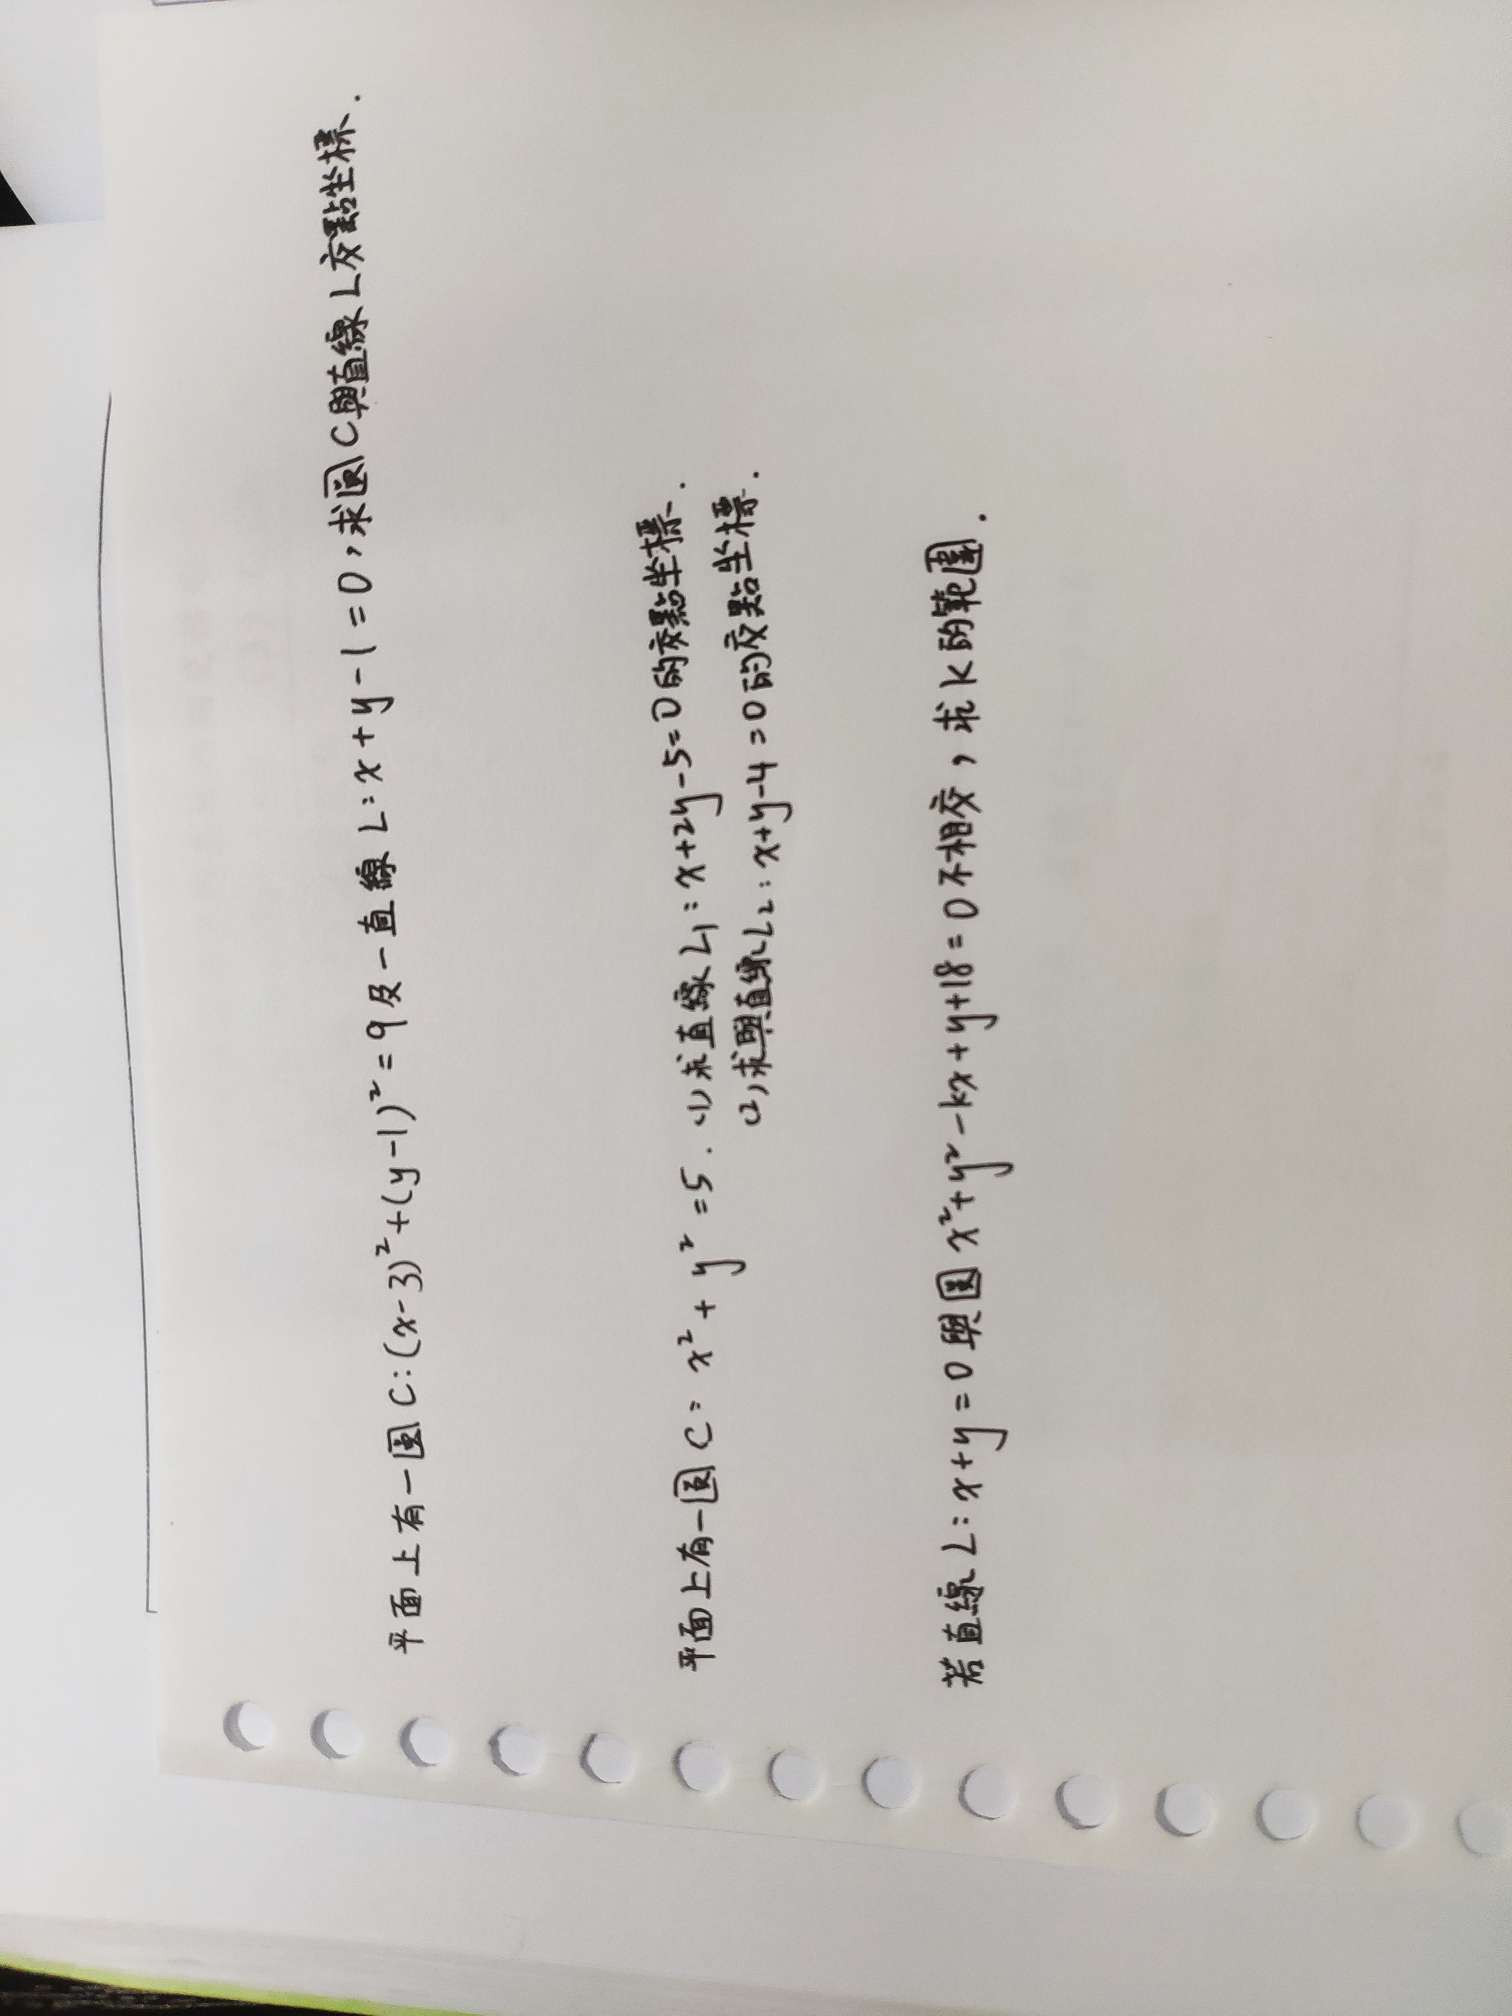 平面上有一圓C:(x-3)²+(y-1)²=9及一直線L:x+y-1=0,求圓C與直線L交點坐標.
平面上有一圓C:x²+y²=5.(1)求直線L₁:x+2y-5=0的交點坐標.
(2)求與直線L₂:x+y-4=0的交點坐標.
若直線L:x+y=0與圓x²+y²-kx+y+18=0不相交,求k的範圍.